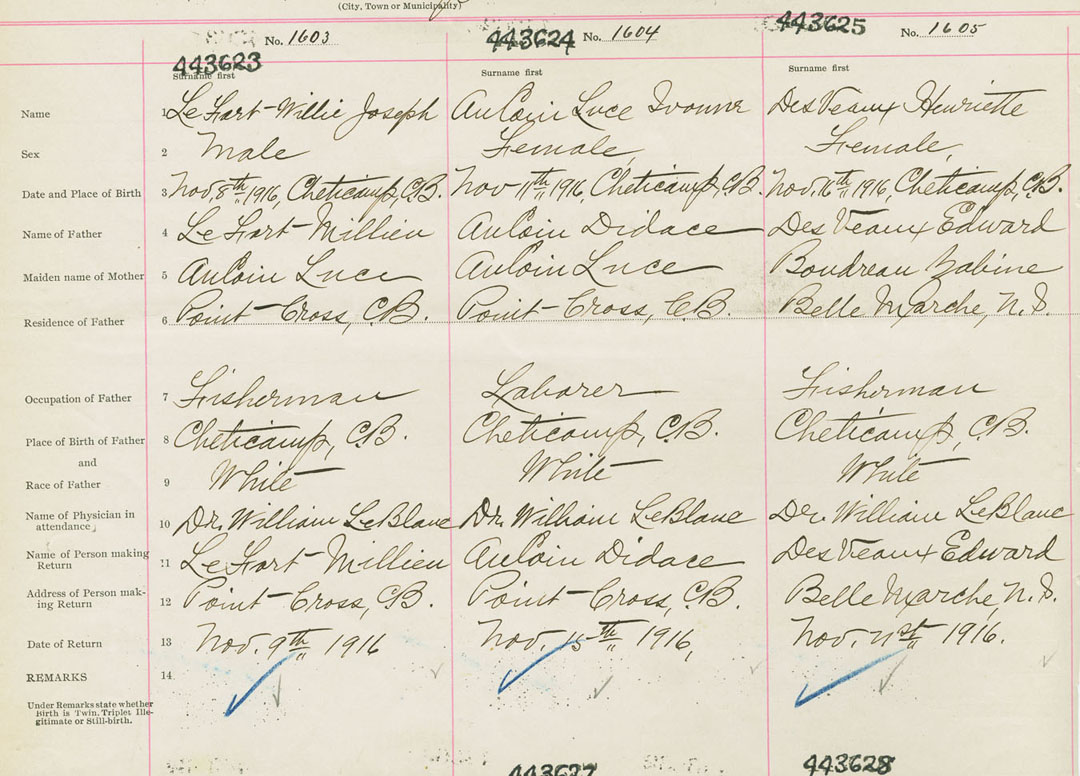 (City, Town or Municipality)
443623 No. 1603 443624 No. 1604 443625 No. 1605
Surname first Surname first Surname first
Name 1 LeFort Willie Joseph AuCoin Luce Ivonne DesVeaux Henriette
Sex 2 Male Female Female
Date and Place of Birth 3 Nov. 8th 1916, Cheticamp, C.B. Nov 11th 1916, Cheticamp, C.B. Nov. 16th 1916, Cheticamp, C.B.
Name of Father 4 LeFort Millien AuCoin Didace DesVeaux Edward
Maiden name of Mother 5 AuCoin Luce AuCoin Luce Boudreau Zabine
Residence of Father 6 Point-Cross, C.B. Point-Cross, C.B. Belle Marche, N.S.
Occupation of Father 7 Fisherman Laborer Fisherman
Place of Birth of Father 8 Cheticamp, C.B. Cheticamp, C.B. Cheticamp, C.B.
and
Race of Father 9 White White White
Name of Physician in
attendance 10 Dr. William LeBlanc Dr. William LeBlanc Dr. William LeBlanc
Name of Person making
Return 11 LeFort Millien AuCoin Didace DesVeaux Edward
Address of Person mak-
ing Return 12 Point-Cross, C.B. Point-Cross, C.B. Belle Marche, N.S.
Date of Return 13 Nov. 9th 1916 Nov. 15th 1916, Nov. 21st 1916.
REMARKS 14
Under Remarks state whether
Birth is Twin, Triplet Ille-
gitimate or Still-birth.
443627 443628